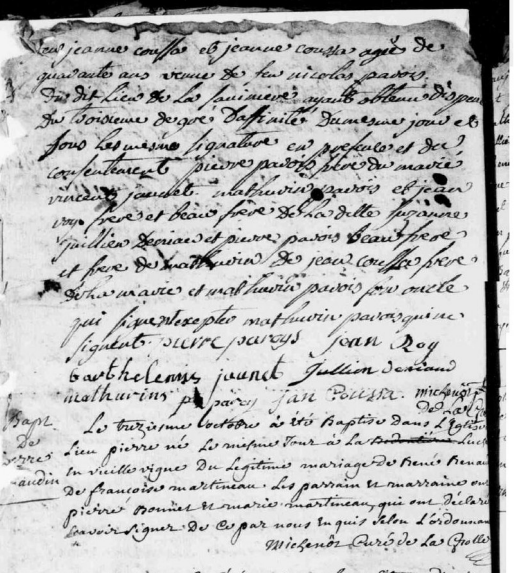 feu jeanne coussa et jeanne coussa agée de
quarante ans veuve de feu nicolas pavois
du dit Lieu de La ayant obtenu dispen
du troisieme degre Daffinité Du mesme jour et
sous les mesme signature en presence et du
consentement pierre pavois frere du marié
vincent jaunet mathurin pavois et jean
roy frere et beau frere de La ditte suzanne
jullien deriaud et pierre pavois beau frere
et frere de mathurin de jean coussa frere
de La mariée et mathurin pavois son oncle
qui signent excepte mathurin pavois qui ne
signent pierre pavoys jean Roy
barthelemis jaunet Jullien deriaud
mathurins pavoys jan Coussa. michenot
de La
Bapt.
de
pierre
naudin
Le treziesme octobre a été Baptise dans L'Eglise
Lieu pierre né Le mesme Jour à La
en vieille vigne Du Legitime mariage de René Renau
de françoise martineau. Les parrain et marraine on
pierre Bonnet et marie martineau, qui ont déclaré
sçavoir signer de ce par nous Enquis selon L'ordonnan
Michenot Curé de La Grolle